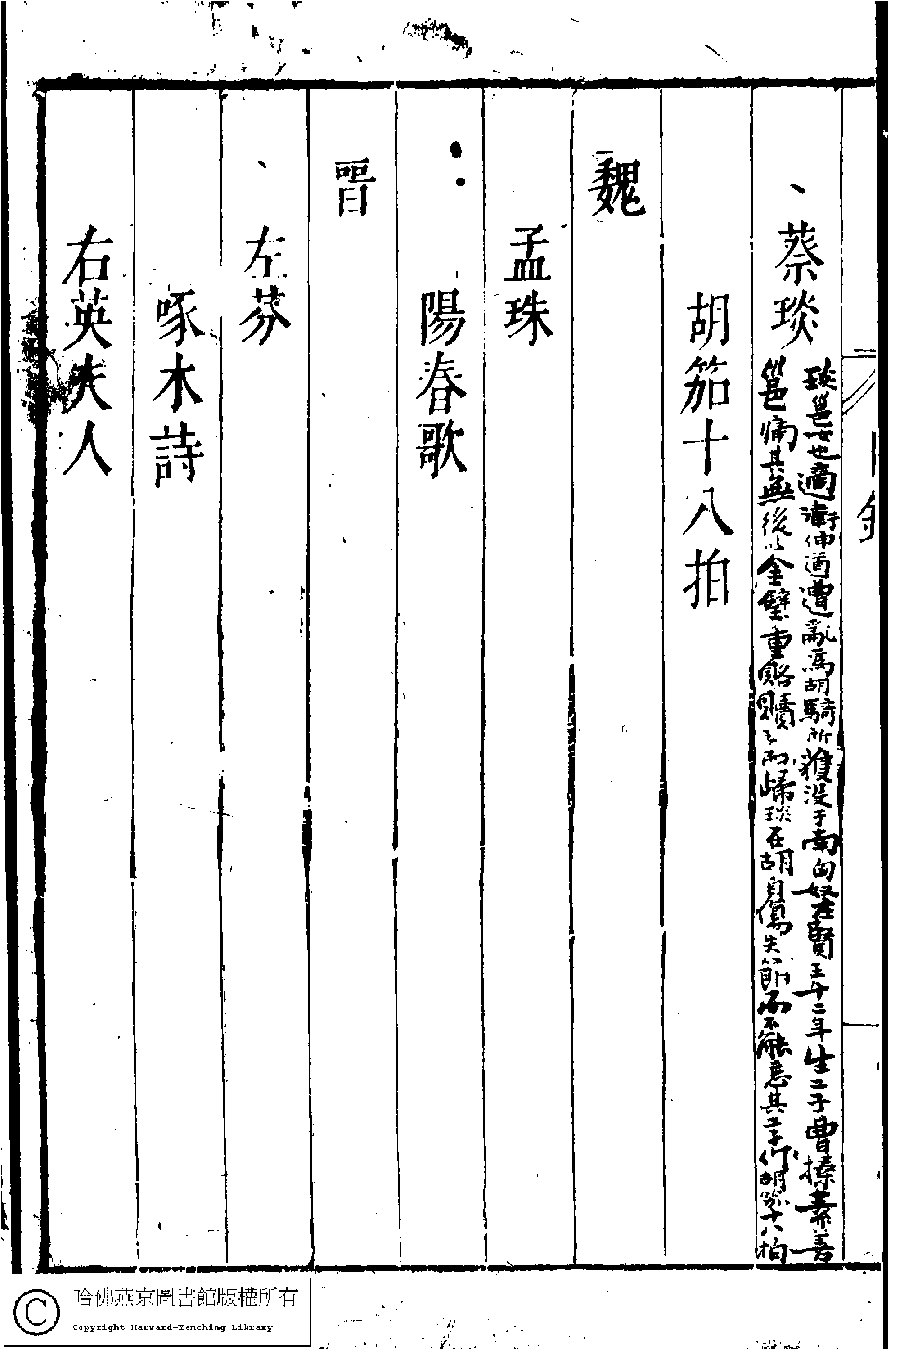 蔡琰
琰邕女也適衛仲道遭亂爲胡騎所獲沒于南匈奴左賢王十二年生二子曹操素善
邕痛其無後以金璧重賂贖之而歸琰在胡自傷失節而不能忘其二子作胡笳十八拍
胡笳十八拍
魏
孟珠
陽春歌
晋
左芬
啄木詩
右英夫人
哈佛燕京圖書館版權所有
Copyright Harvard-Yenching Library